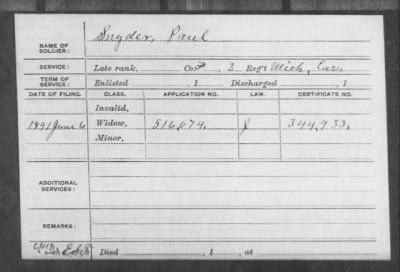 NAME OF SOLDIER: Snyder, Paul
SERVICE: Late rank, Co. 2 Reg't Mich. Cav.
TERM OF SERVICE: Enlisted , 1 Discharged , 1
DATE OF FILING. CLASS. APPLICATION NO. LAW. CERTIFICATE NO.
Invalid,
1891 June 6 Widow, 516,074. 344,933.
Minor,
ADDITIONAL SERVICES:
REMARKS:
Died , 1 , at